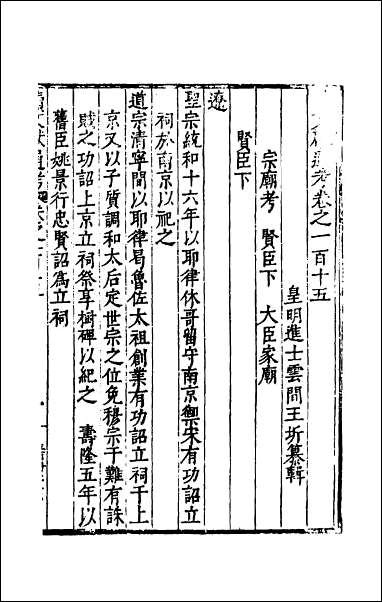 文獻通考卷之一百十五
皇明進士雲間王圻纂輯
宗廟考　賢臣下　大臣家廟
賢臣下
遼
聖宗統和十六年以耶律休哥留守南京禦宋有功詔立
祠於南京以祀之
道宗清寧間以耶律曷魯佐太祖創業有功詔立祠于上
京又以子質調和太后定世宗之位免穆宗于難有誅
賊之功詔上京立祠祭享樹碑以紀之　壽隆五年以
舊臣姚景行忠賢詔為立祠